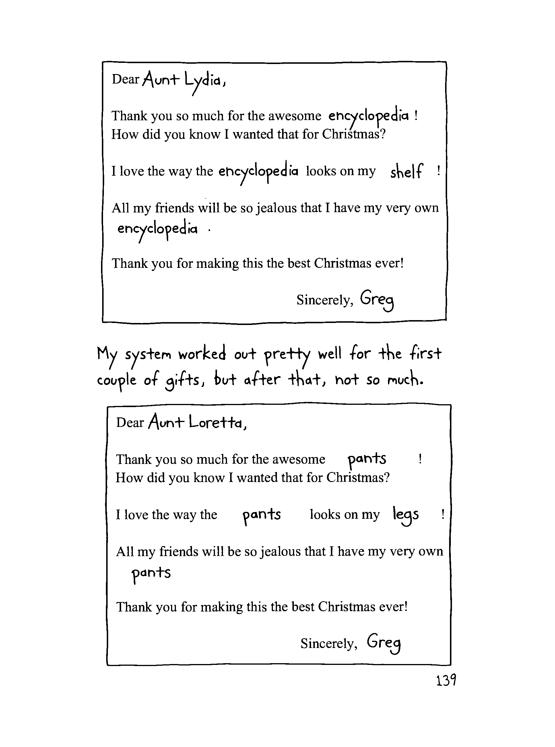 Dear Aunt Lydia,
Thank you so much for the awesome encyclopedia !
How did you know I wanted that for Christmas?
I love the way the encyclopedia looks on my shelf !
All my friends will be so jealous that I have my very own
encyclopedia .
Thank you for making this the best Christmas ever!
Sincerely, Greg
My system worked out pretty well for the first
couple of gifts, but after that, not so much.
Dear Aunt Loretta,
Thank you so much for the awesome pants !
How did you know I wanted that for Christmas?
I love the way the pants looks on my legs !
All my friends will be so jealous that I have my very own
pants
Thank you for making this the best Christmas ever!
Sincerely, Greg
139